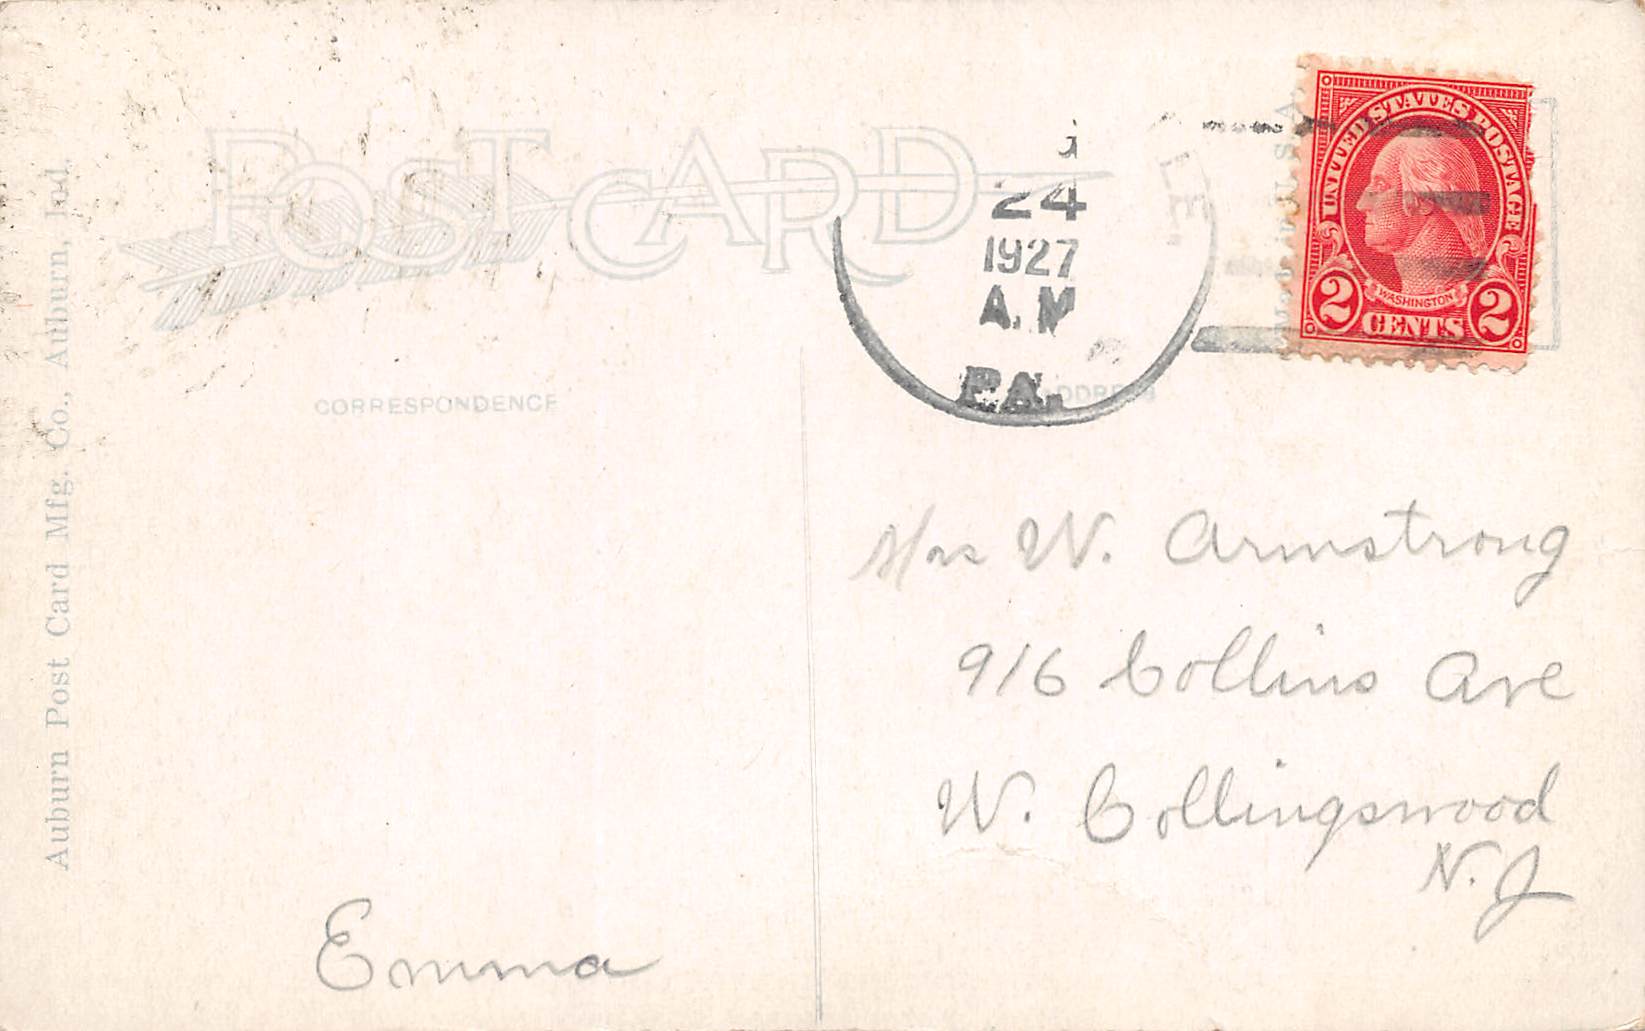 POST CARD
CORRESPONDENCE
Auburn Post Card Mfg. Co., Auburn, Ind.
LE.
24
1927
A.M
PA.
UNITED STATES POSTAGE
WASHINGTON
2 CENTS 2
Mrs W. Armstrong
916 Collins Ave
W. Collingswood
N.J
Emma